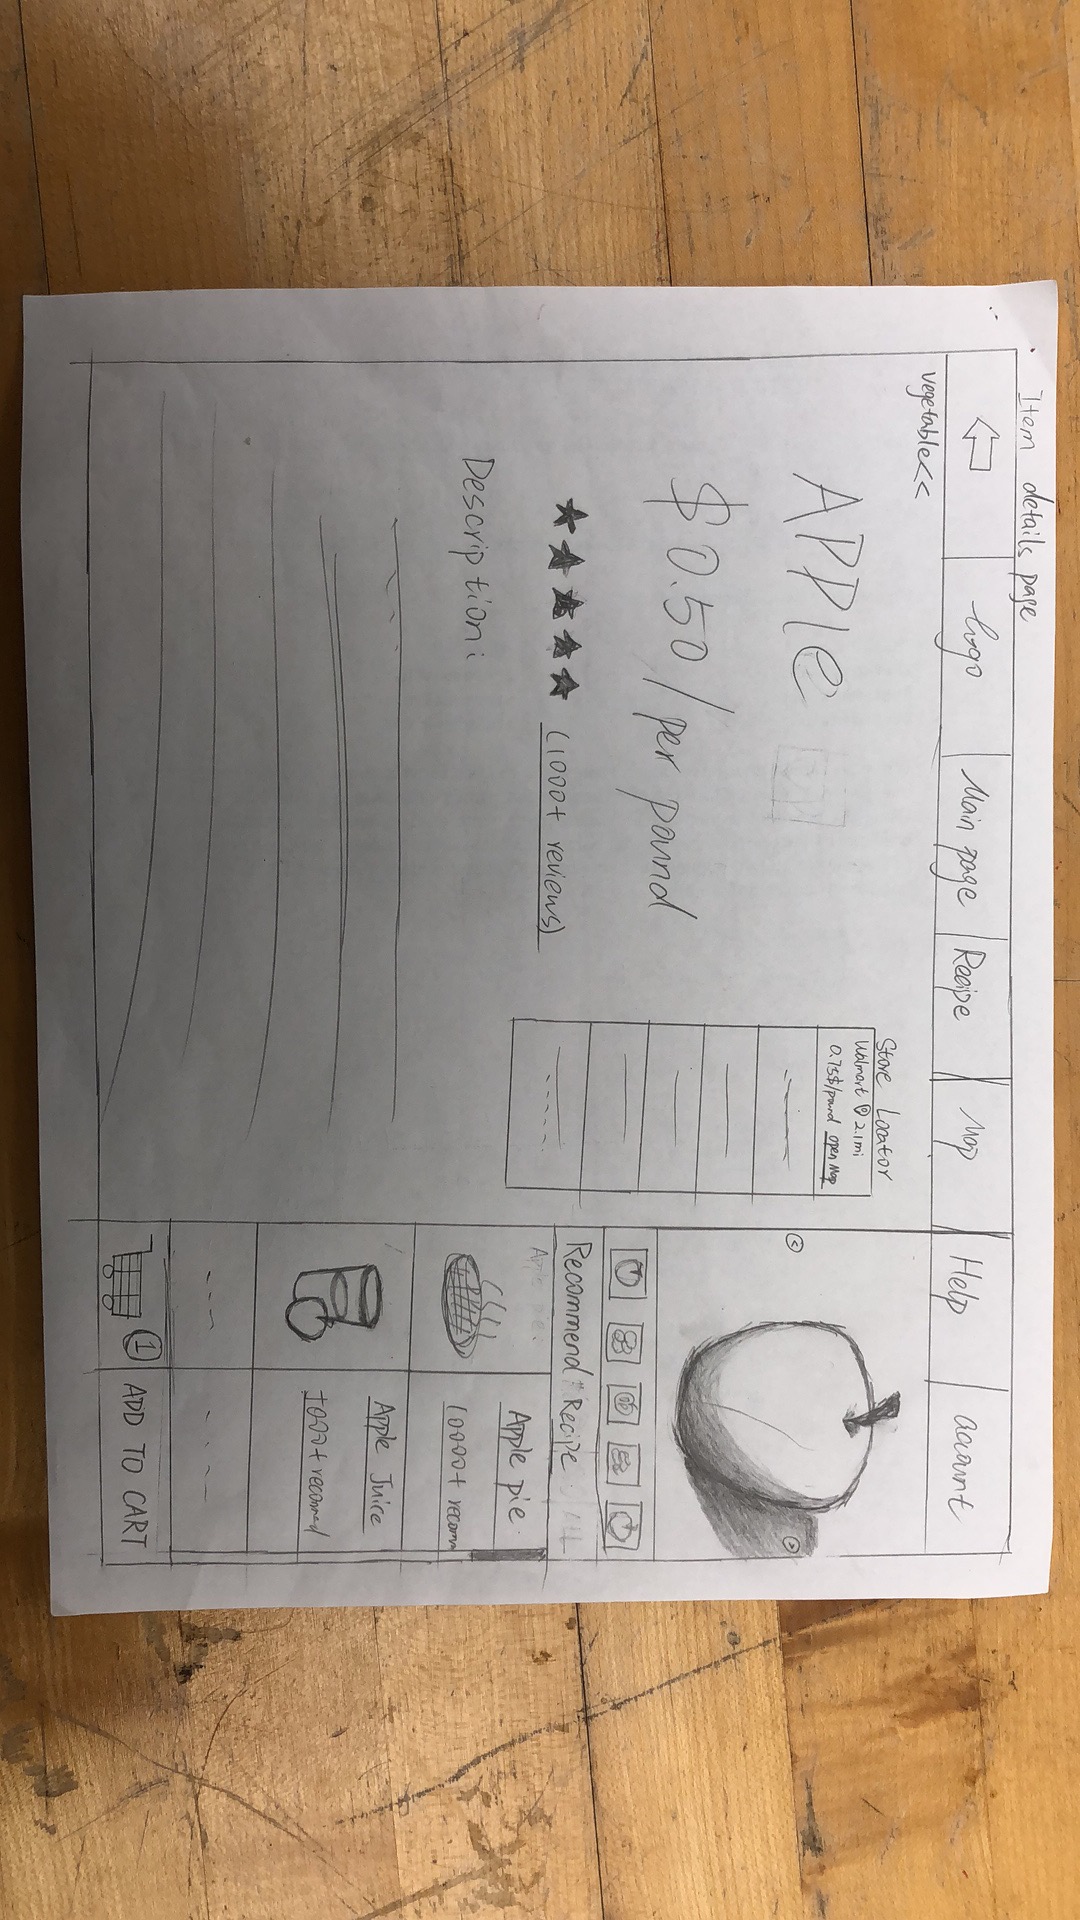 Item details page
Logo
Main page
Recipe
Map
Help
account
vegetable<<
APPle
$0.50/per pound
★★★★★ (1000+ reviews)
Description:
Store Locator
Walmart 2.1mi
0.75$/pound open Map
Recommend Recipe
Apple pie
10000+ recomm
Apple Juice
1000+ recomed
1 ADD TO CART